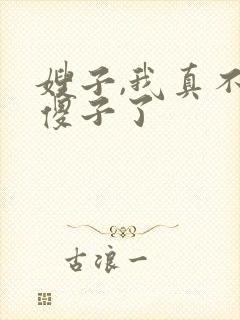 嫂子,我真不
傻子了
古浪一